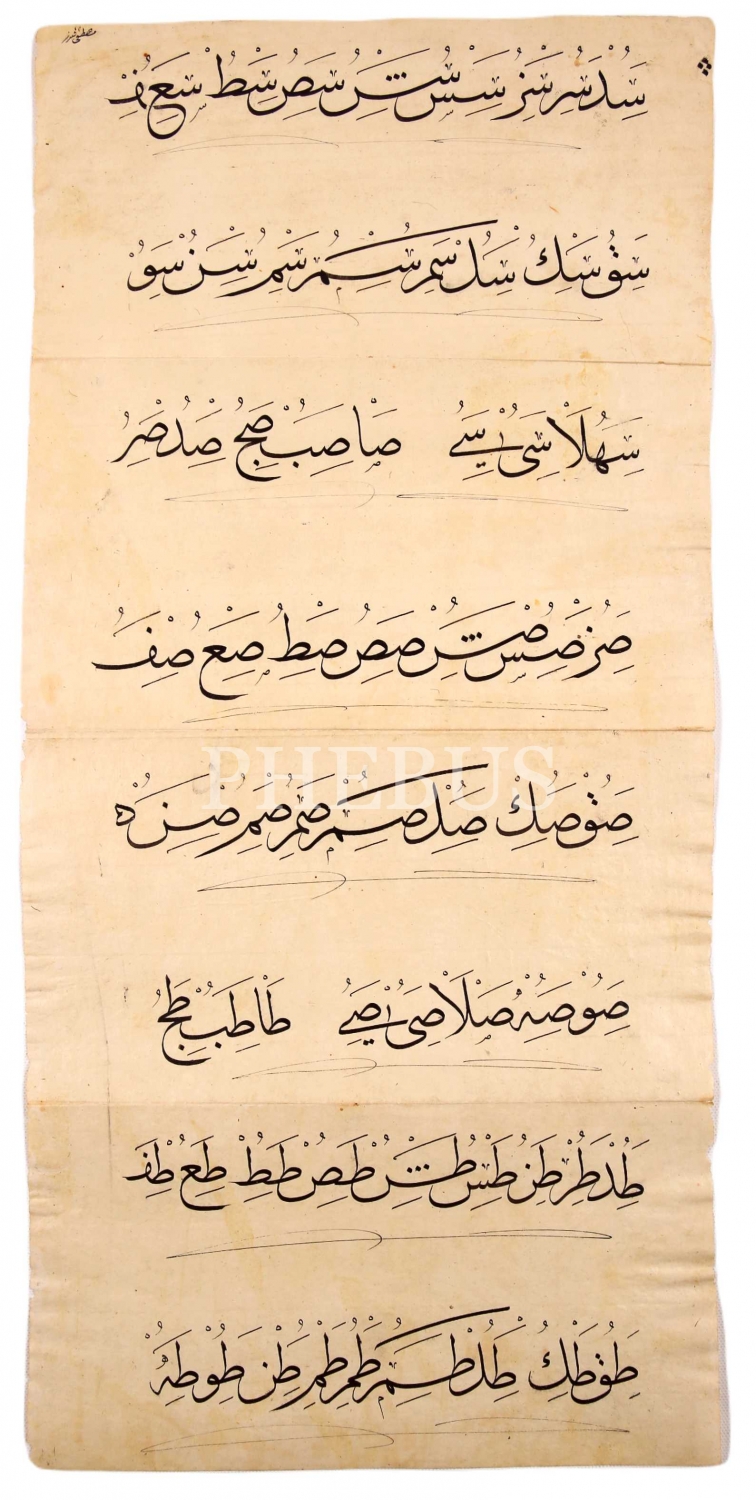 سد سر سز سس سش سص سط سعف
سق سك سل سم سم سم سن سو
سهلا سى سے صا صب صج صد صر
صز صس صش صص صط صع صف
صق صك صل صم صم صم صن ه
PHEBUS
صو صه صلا صى صے طا طب طج
طد طر طن طس طش طص طط طع طف
طق طك طل طم طم طم طن طو طه